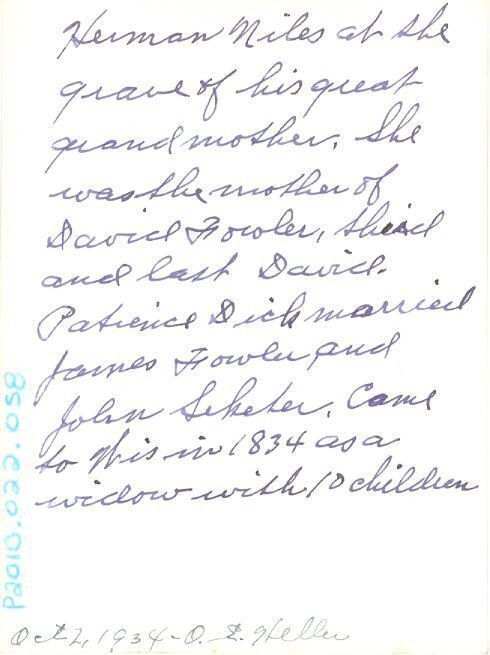 Herman Niles at the
grave of his great
grandmother. She
was the mother of
David Fowler, third
and last David.
Patience Dick married
James Fowler and
John Seketer. Came
to Wis in 1834 as a
widow with 10 children
P2010.022.058
Oct 2, 1934 - O. L. Heller